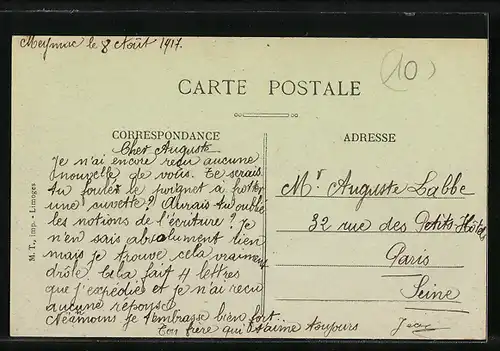 Meymac le 8 Août 1917.
(10)
CARTE POSTALE
CORRESPONDANCE
ADRESSE
Cher Auguste
Je n'ai encore reçu aucune
nouvelle de vous. Te serais
tu foulé le poignet à frotter
une cuvette ? Aurais tu oublié
les notions de l'écriture ? Je
n'en sais absolument rien
mais je trouve cela vraiment
drôle. Cela fait 4 lettres
que j'expédie et je n'ai reçu
aucune réponse
Néamoins je t'embrasse bien fort.
Ton frère qui t'aime toujours
Mr Auguste Labbe
32 rue des Petits-Hôtels
Paris
Seine
M. T., imp. - Limoges